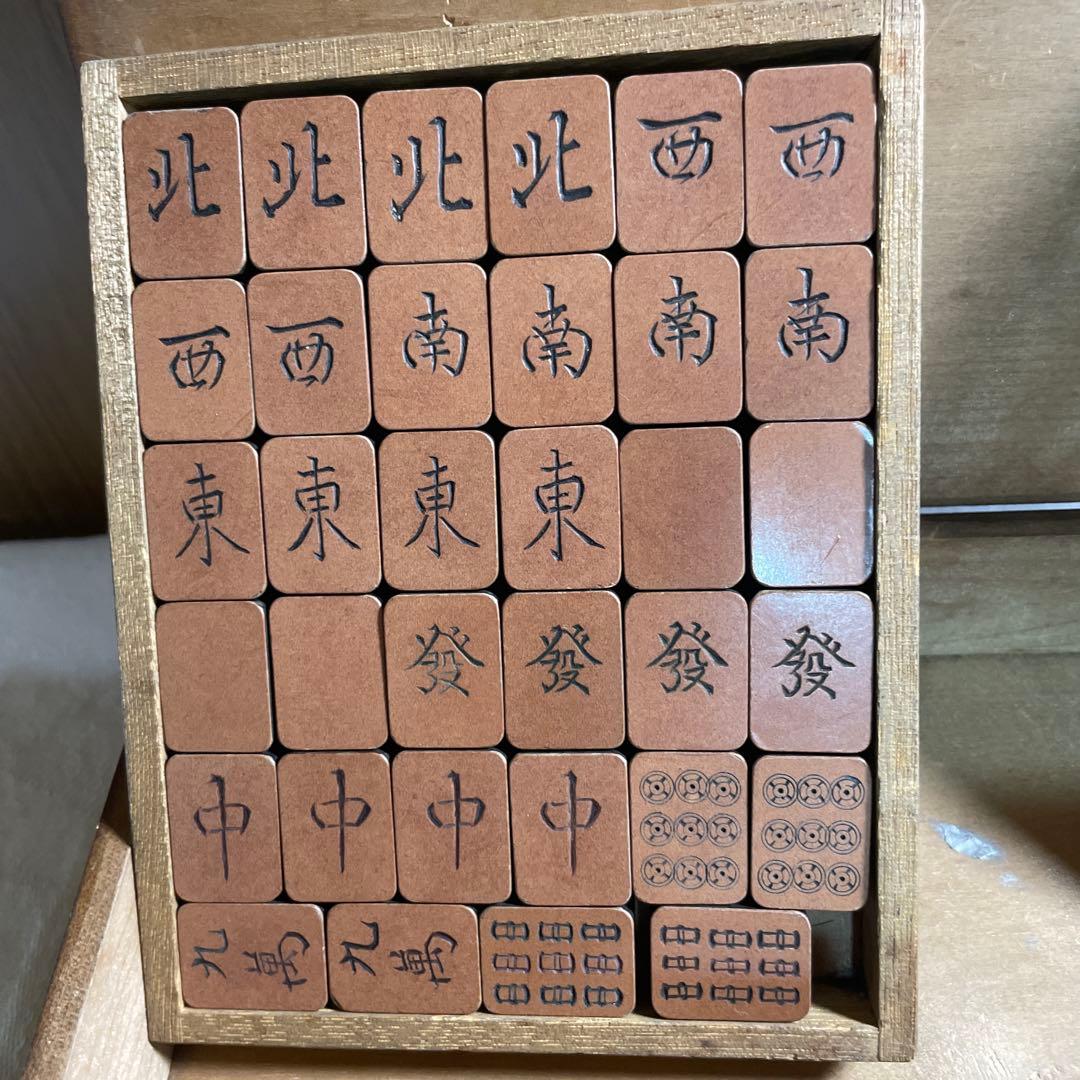 北 北 北 北 西 西
西 西 南 南 南 南
東 東 東 東
發 發 發 發
中 中 中 中
九萬 九萬